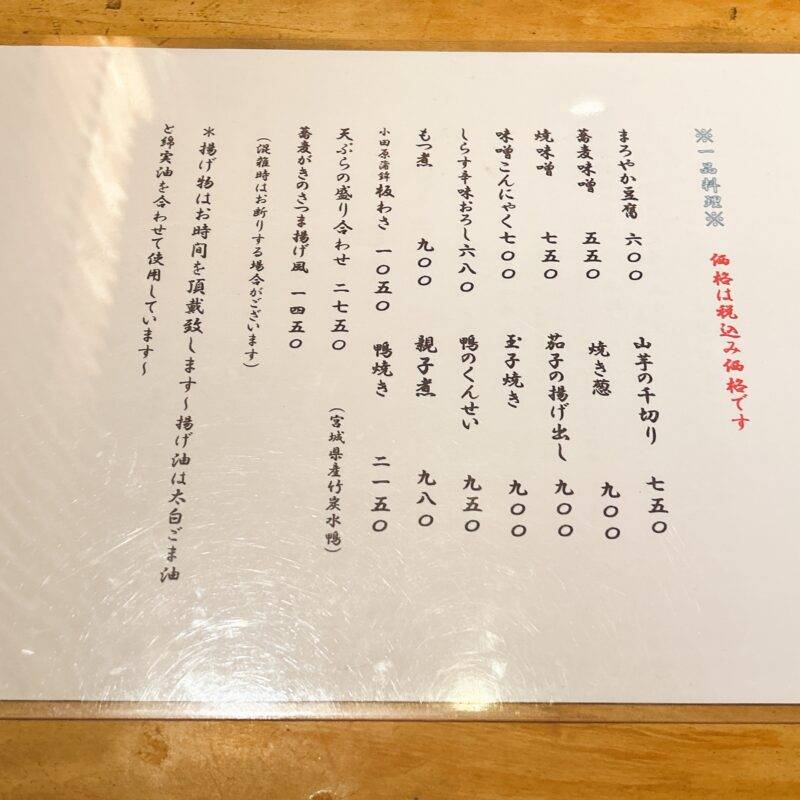 ※一品料理※
価格は税込み価格です
まろやか豆腐 六〇〇
蕎麦味噌 五五〇
焼味噌 七五〇
味噌こんにゃく 七〇〇
しらす辛味おろし 六八〇
もつ煮 九〇〇
小田原蒲鉾 板わさ 一〇五〇
天ぷらの盛り合わせ 二七五〇
蕎麦がきのさつま揚げ風 一四五〇
(混雑時はお断りする場合がございます)
山芋の千切り 七五〇
焼き葱 九〇〇
茄子の揚げ出し 九〇〇
玉子焼き 九〇〇
鴨のくんせい 九五〇
親子煮 九八〇
鴨焼き 二一五〇
(宮城県産竹炭水鴨)
*揚げ物はお時間を頂戴致します~揚げ油は太白ごま油
と綿実油を合わせて使用しています~